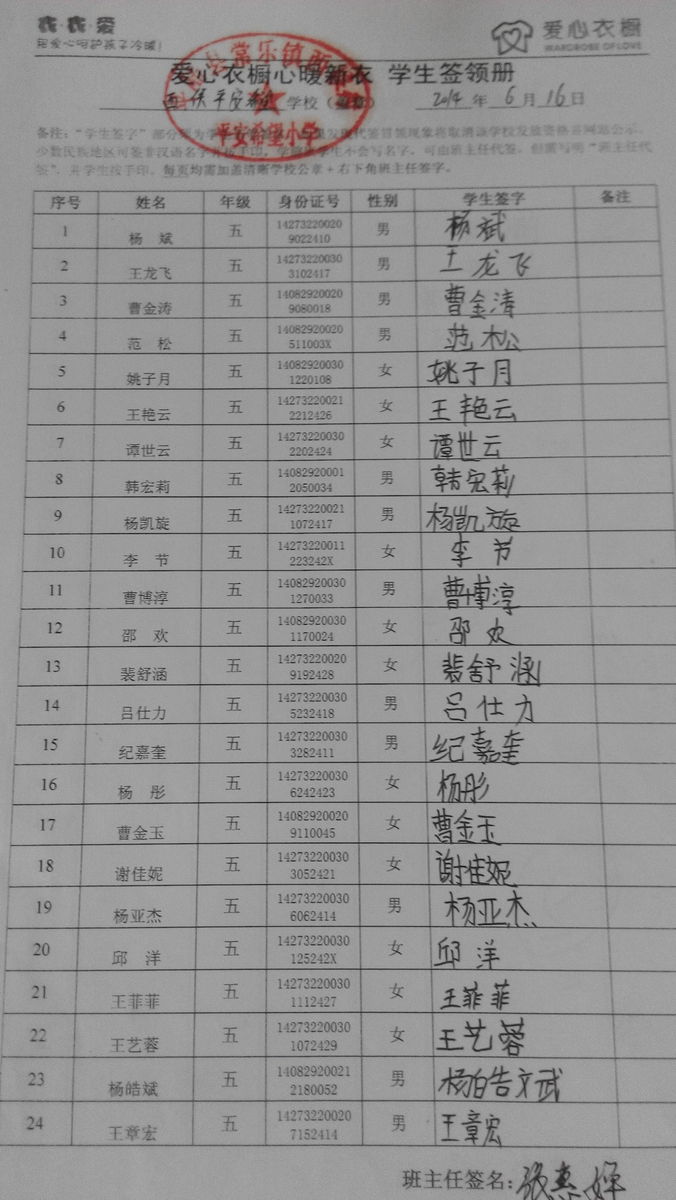 我·我·爱
用爱心呵护孩子冷暖!
爱心衣橱
WARDROBE OF LOVE
爱心衣橱心暖新衣 学生签领册
平安希望小学
学校 2014 年 6 月 16 日
少数民族地区可签非汉语名字并按手印，学生不会写名字，可由班主任代签，但需写明“班主任代
签”，并学生按手印。每页均需加盖清晰学校公章+右下角班主任签字。
序号 姓名 年级 身份证号 性别 学生签字 备注
1 杨 斌 五 142732200209022410 男 杨斌
2 王龙飞 五 142732200303102417 男 王龙飞
3 曹金涛 五 140829200209080018 男 曹金清
4 范 松 五 14082920020511003X 男 范松
5 姚子月 五 140829200301220108 女 姚子月
6 王艳云 五 142732200212212426 女 王艳云
7 谭世云 五 142732200302202424 女 谭世云
8 韩宏莉 五 140829200012050034 男 韩宏莉
9 杨凯旋 五 142732200211072417 男 杨凯旋
10 李 节 五 14273220011223242X 女 李节
11 曹博淳 五 140829200301270033 男 曹博淳
12 邵 欢 五 140829200301170024 女 邵欢
13 裴舒涵 五 142732200209192428 女 裴舒涵
14 吕仕力 五 142732200305232418 男 吕仕力
15 纪嘉奎 五 142732200303282411 男 纪嘉奎
16 杨 彤 五 142732200306242423 女 杨彤
17 曹金玉 五 140829200209110045 女 曹金玉
18 谢佳妮 五 142732200303052421 女 谢佳妮
19 杨亚杰 五 142732200306062414 男 杨亚杰
20 邱 洋 五 14273220030125242X 女 邱洋
21 王菲菲 五 142732200301112427 女 王菲菲
22 王艺蓉 五 142732200301072429 女 王艺蓉
23 杨皓斌 五 140829200212180052 男 杨皓斌
24 王章宏 五 142732200207152414 男 王章宏
班主任签名：